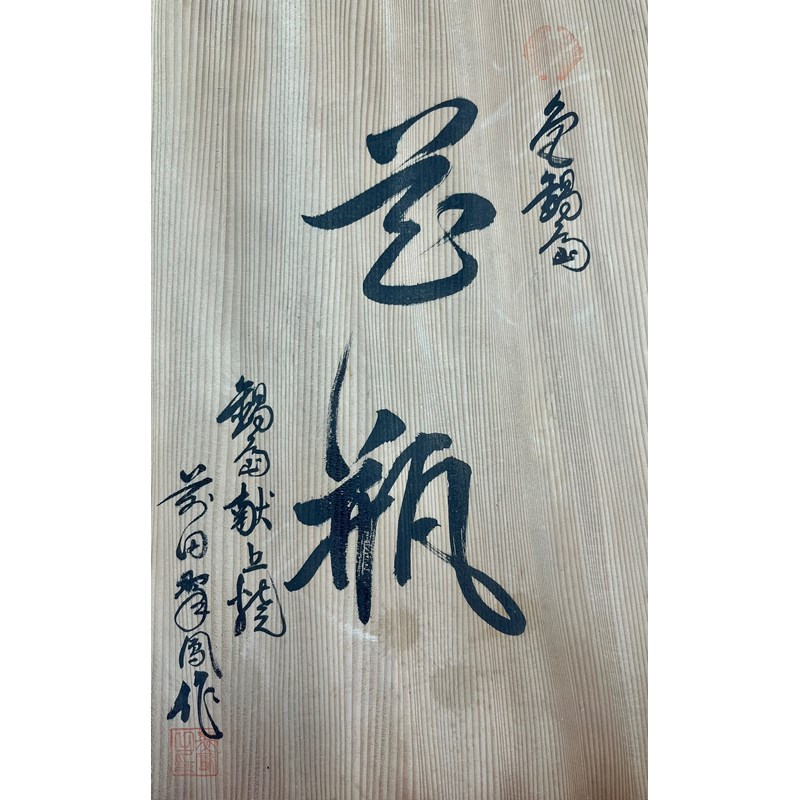 色鍋島
花瓶
鍋島献上焼
前田翠鳳作